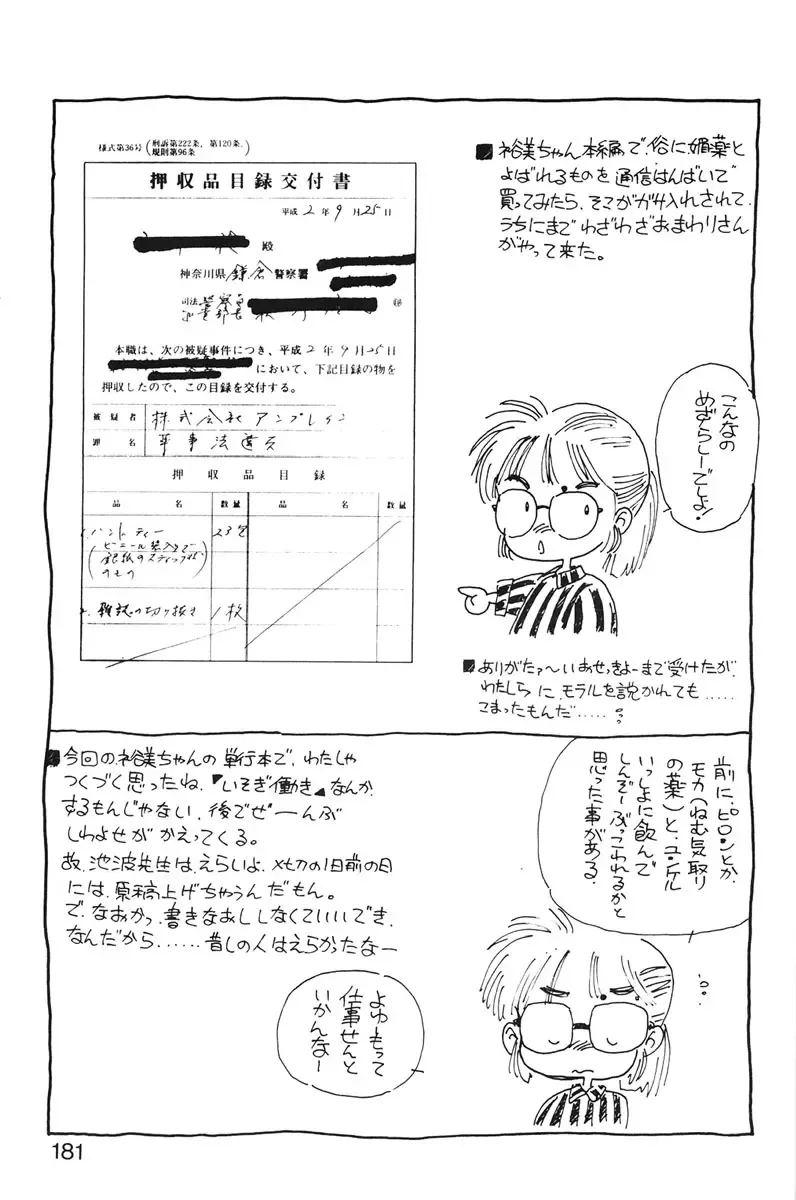 ■裕美ちゃん本編で、俗に媚薬と
よばれるものを通信はんばいで
買ってみたら、そこがガサ入れされて、
うちにまでわざわざおまわりさん
がやって来た。
様式第36号(刑訴第222条、第120条、
規則第96条)
押収品目録交付書
平成2年9月25日
殿
神奈川県鎌倉警察署
司法警察員
本職は、次の被疑事件につき、平成2年9月25日
において、下記目録の物を
押収したので、この目録を交付する。
被疑者 株式会社アンブレイン
罪名 薬事法違反
押収品目録
品名 数量 品名 数量
1. ハントティー 23包
(ビニール袋入りで
銀紙のスティック状
のもの)
2. 雑誌の切り抜き 1枚
こんなの
めずらしーでしょ!
■ありがたァ〜いおせっきょーまで受けたが、
わたしらに、モラルを説かれても.....
こまったもんだ.....
前に、ピロンとか
モカ(ねむ気取り
の薬)と、ユンケル
いっしょに飲んで
しんぞーぶっこわれるかと
思った事がある。
■今回の裕美ちゃんの単行本で、わたしゃ
つくづく思ったね、『いそぎ働き』なんか
するもんじゃない、後でぜーんぶ
しわよせがかえってくる。
故、池波先生は、えらいよ、〆切の1日前の日
には、原稿上げちゃうんだもん。
で、なおかつ、書きなおししなくていいでき、
なんだから、......昔しの人はえらかったなー
よゆーもって
仕事せんと
いかんなー
181